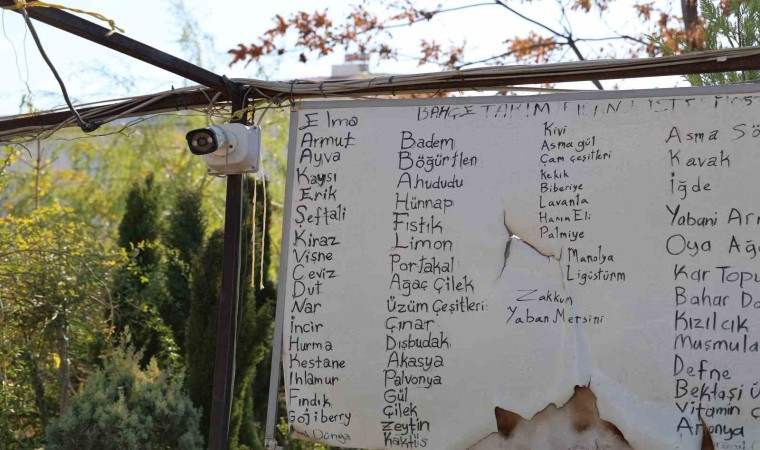 BAHÇE TAKIM
Elma
Armut
Ayva
Kaysı
Erik
Şeftali
Kiraz
Vişne
Ceviz
Dut
Nar
İncir
Hurma
Kestane
Ihlamur
Fındık
Gojiberry
Dünya
Badem
Böğürtlen
Ahududu
Hünnap
Fıstık
Limon
Portakal
Ağaç Çilek
Üzüm Çeşitleri:
Çınar
Dışbudak
Akasya
Palvonya
Gül
Çilek
Zeytin
Kaktüs
Kivi
Asmagül
Çam çeşitleri
Kekik
Biberiye
Lavanta
Hanım Eli
Palmiye
Manolya
Ligüstürüm
Zakkum
Yaban Mersini
Asma Sö
Kavak
İğde
Yabani Ar
Oya Ağa
Kar Topu
Bahar Da
Kızılcık
Muşmula
Defne
Bektaşi Ü
Vitamin Ç
Aronya